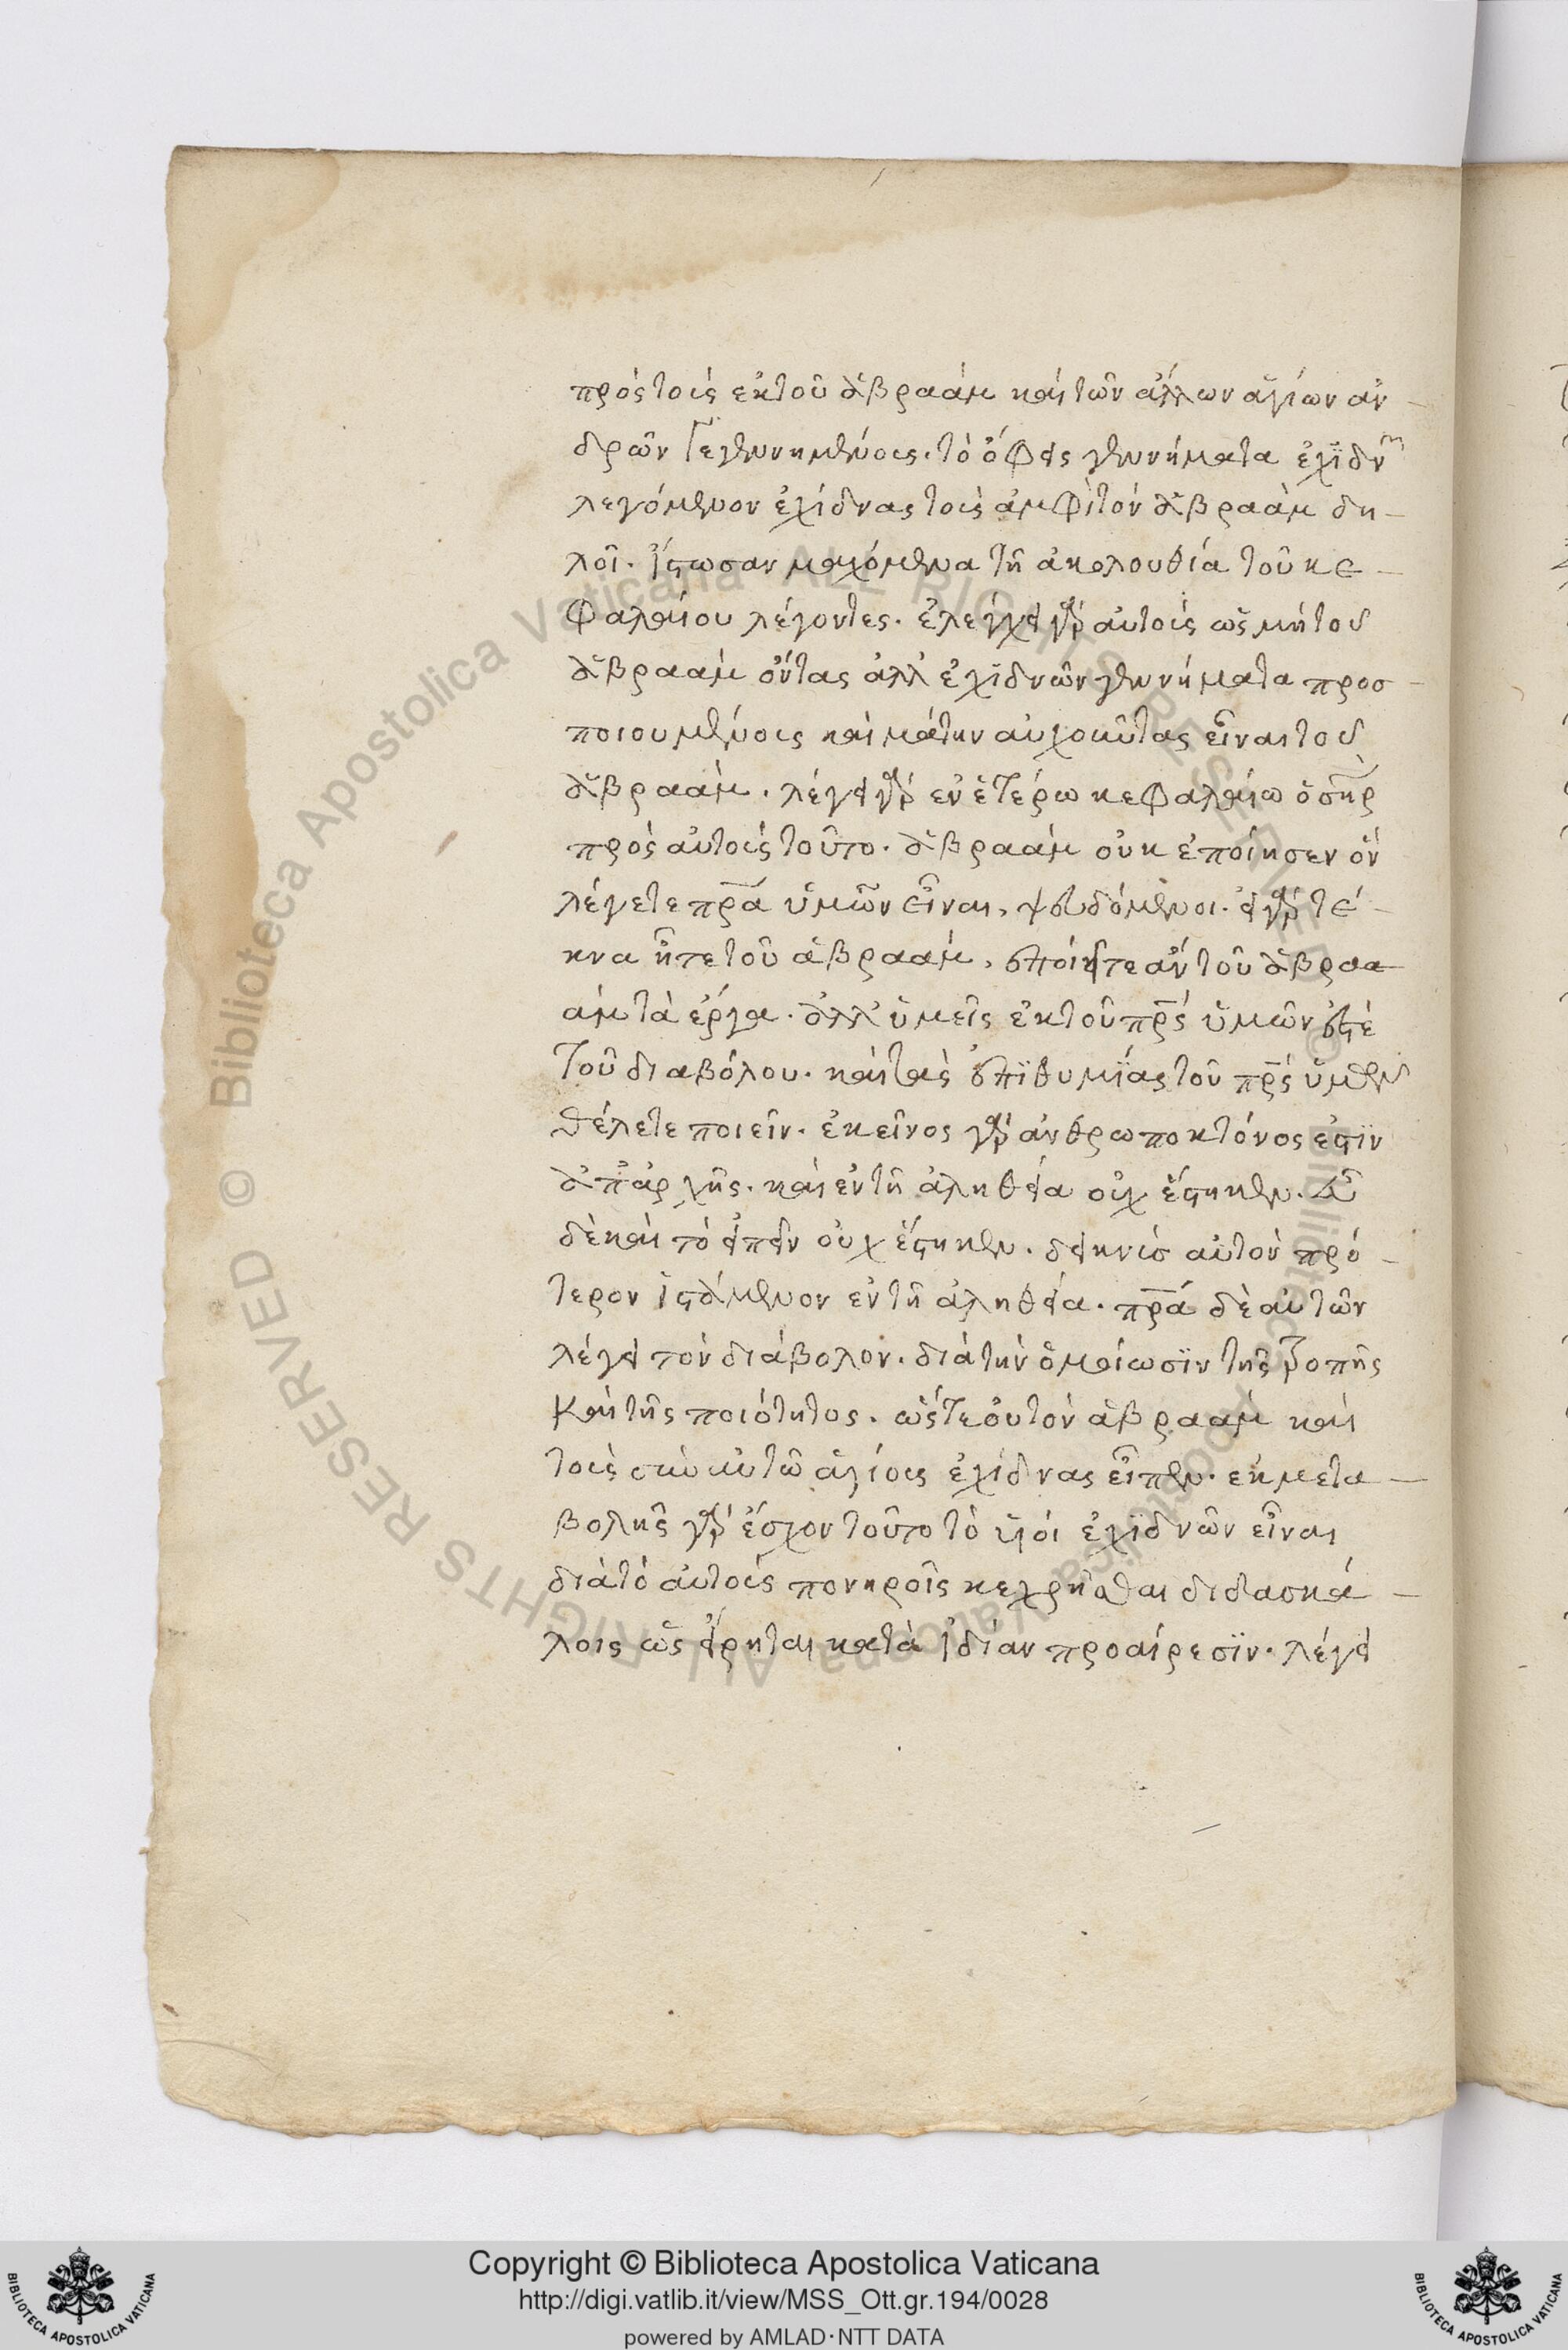 πρὸς τοὺς ἐκ τοῦ ἀβραὰμ καὶ τῶν ἄλλων ἁγίων ἀν
δρῶν γεγεννημένους. τὸ ὄφεις γεννήματα ἐχϊδν
λεγόμενον ἐχίδνας τοὺς ἀμφὶ τὸν ἀβραὰμ δη
λοῖ. ἴστωσαν μαχόμενα τῆ ἀκολουθία τοῦ κε
φαλαίου λέγοντες. ἐλέγχει γὰρ αὐτοὺς ὡς μὴ τοῦ
ἀβραὰμ ὄντας ἀλλ' ἐχϊδνῶν γεννήματα προσ
ποιουμένους καὶ μάτην αὐχοῦντας εἶναι τοῦ
ἀβραάμ. λέγει γὰρ ἐν ἑτέρω κεφαλαίω ὁ σ̅η̅ρ
πρὸς αὐτοὺς τοῦτο. ἀβραὰμ οὐκ ἐποίησεν ὃν
λέγετε πρ̅α ὑμῶν εἶναι, ψευδόμενοι. εἰ γὰρ τέ
κνα ἦτε τοῦ ἀβραάμ, ἐποιῆτε ἂν τοῦ ἀβραα
ὰμ τὰ ἔργα. ἀλλ' ὑμεῖς ἐκ τοῦ πρ̅ς ὑμῶν ἐστὲ
τοῦ διαβόλου. καὶ τὰς ἐπϊθυμϊας τοῦ πρ̅ς ὑμῶν
θέλετε ποιεῖν. ἐκεῖνος γὰρ ἀνθρωποκτόνος ἐστϊν
ἀπ' ἀρχῆς. καὶ ἐν τῆ ἀληθεία οὐχ ἕστηκεν.
δὲ καὶ τὸ εἰπεῖν οὐχ ἕστηκεν. δείκνυσ αὐτὸν πρό
τερον ἱστάμενον ἐν τῆ ἀληθεία. πρ̅α δὲ αὐτῶν
λέγει τὸν διάβολον. διὰ τὴν ὁμοίωσϊν τῆς ῥοπῆς
καὶ τῆς ποιότητος. ὥστε οὐ τὸν ἀβραὰμ καὶ
τοὺς σὺν αὐτῶ ἁγίους ἐχίδνας εἶπεν. ἐκ μετα
βολῆς γὰρ ἔσχον τοῦτο τὸ υἱοὶ ἐχϊδνῶν εἶναι
διὰ τὸ αὐτοὺς πονηροῖς κεχρῆσθαι διδασκά
λοις ὡς εἴρηται κατὰ ἰδίαν προαίρεσϊν. λέγει
Copyright © Biblioteca Apostolica Vaticana
http://digi.vatlib.it/view/MSS_Ott.gr.194/0028
powered by AMLAD·NTT DATA